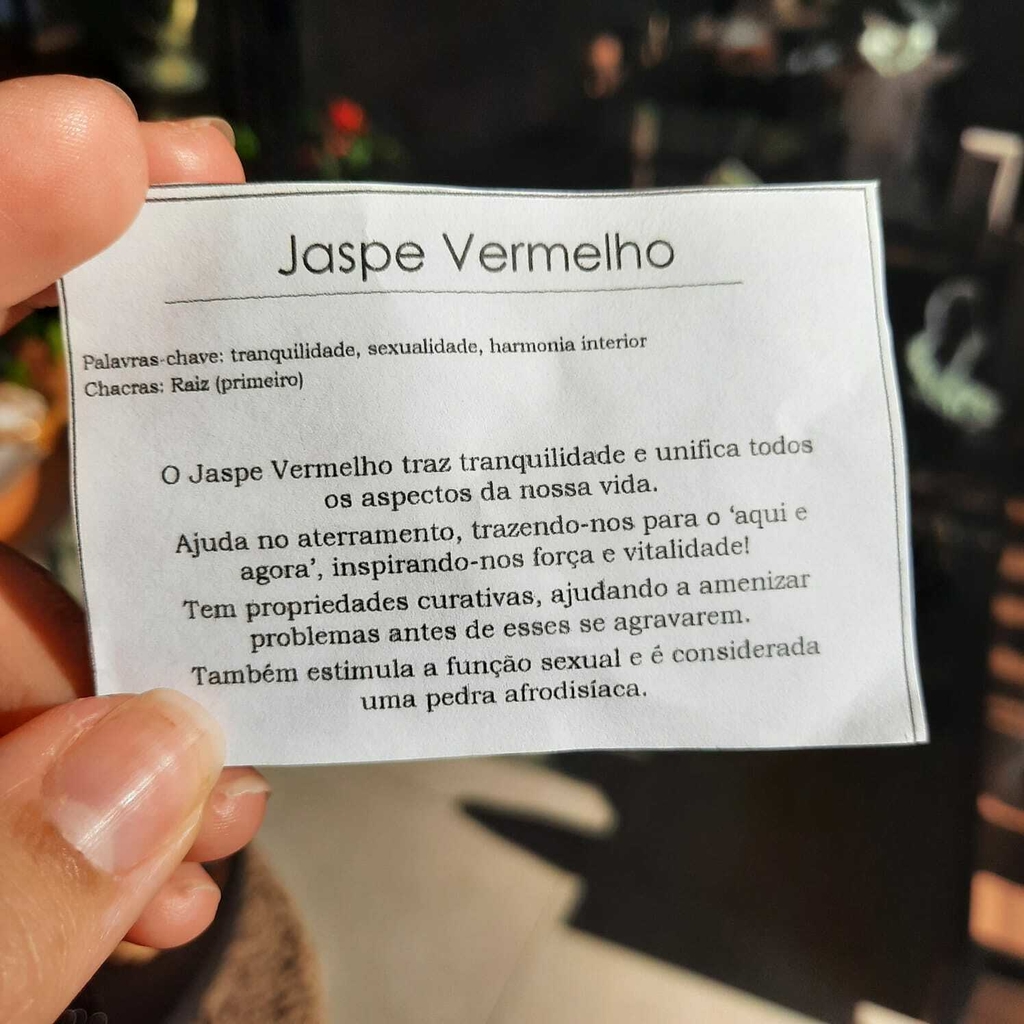 Jaspe Vermelho
Palavras-chave: tranquilidade, sexualidade, harmonia interior
Chacras: Raiz (primeiro)
O Jaspe Vermelho traz tranquilidade e unifica todos
os aspectos da nossa vida.
Ajuda no aterramento, trazendo-nos para o ‘aqui e
agora’, inspirando-nos força e vitalidade!
Tem propriedades curativas, ajudando a amenizar
problemas antes de esses se agravarem.
Também estimula a função sexual e é considerada
uma pedra afrodisíaca.